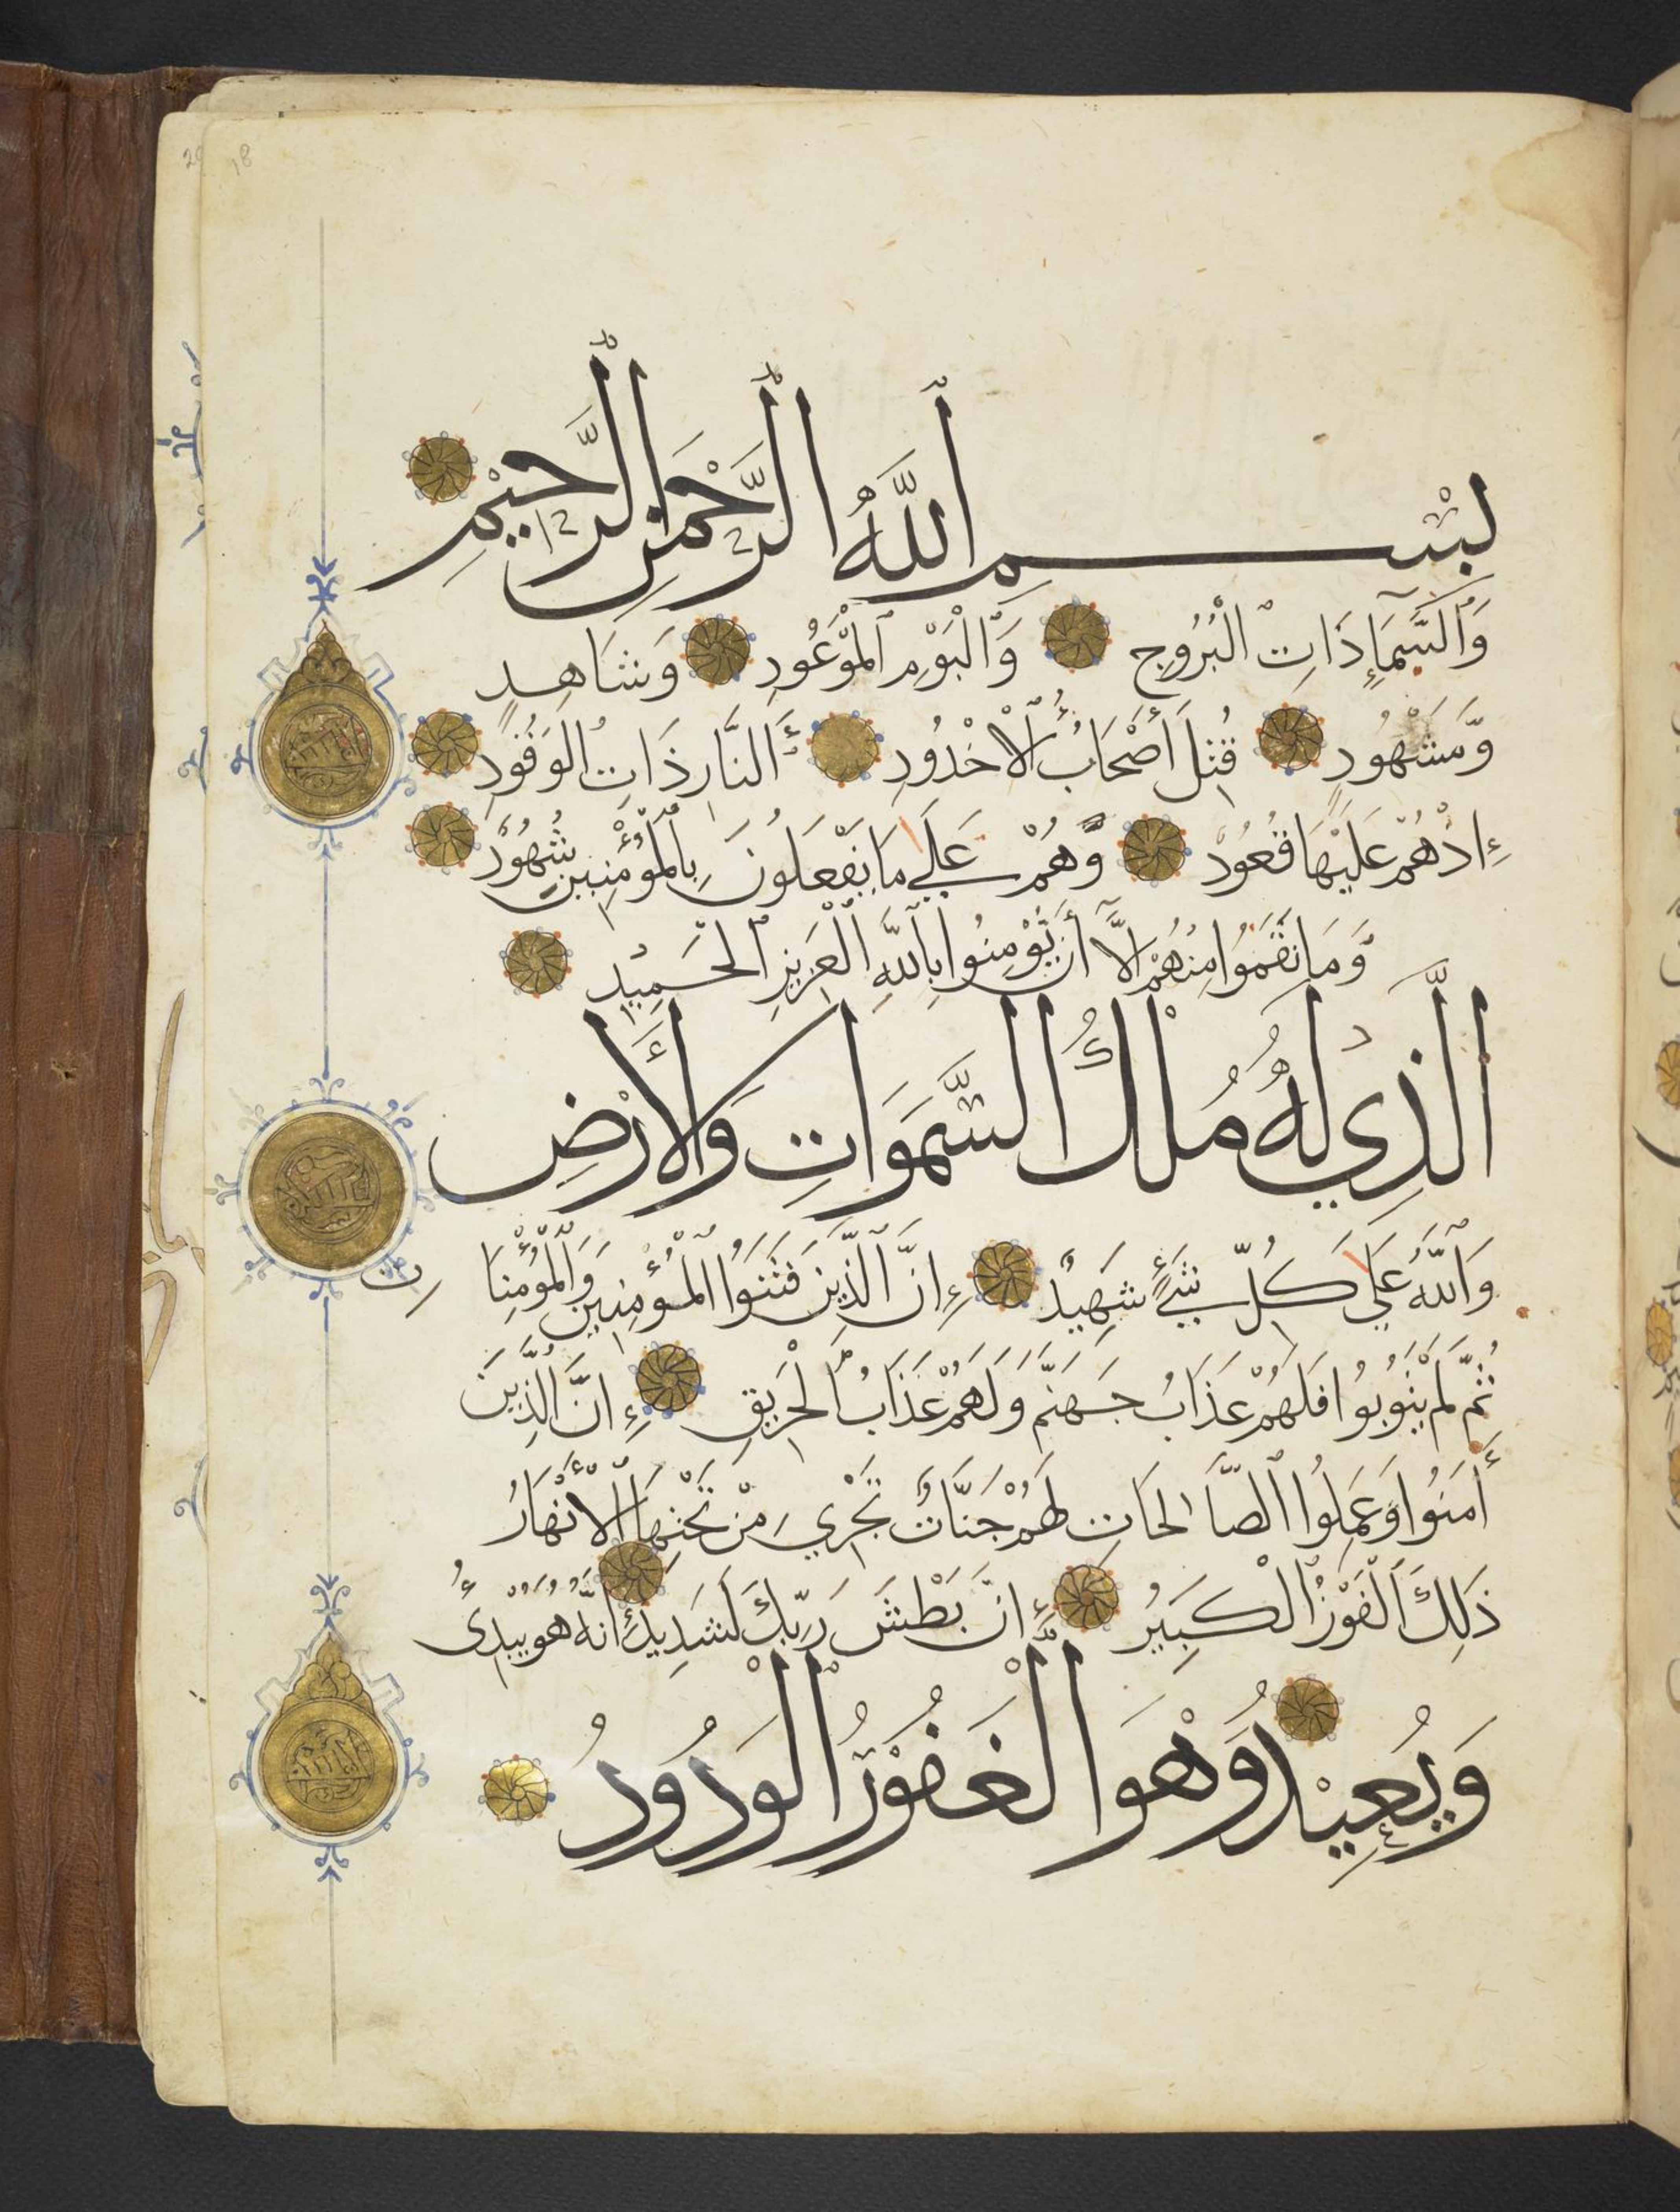 بِسْمِ اللَّهِ الرَّحْمَنِ الرَّحِيمِ
وَالسَّمَاءِ ذَاتِ الْبُرُوجِ وَالْيَوْمِ الْمَوْعُودِ وَشَاهِدٍ
وَمَشْهُودٍ قُتِلَ أَصْحَابُ الْأُخْدُودِ النَّارِ ذَاتِ الْوَقُودِ
إِذْ هُمْ عَلَيْهَا قُعُودٌ وَهُمْ عَلَى مَا يَفْعَلُونَ بِالْمُؤْمِنِينَ شُهُودٌ
وَمَا نَقَمُوا مِنْهُمْ إِلَّا أَنْ يُؤْمِنُوا بِاللَّهِ الْعَزِيزِ الْحَمِيدِ
الَّذِي لَهُ مُلْكُ السَّمَوَاتِ وَالْأَرْضِ
وَاللَّهُ عَلَى كُلِّ شَيْءٍ شَهِيدٌ إِنَّ الَّذِينَ فَتَنُوا الْمُؤْمِنِينَ وَالْمُؤْمِنَاتِ
ثُمَّ لَمْ يَتُوبُوا فَلَهُمْ عَذَابُ جَهَنَّمَ وَلَهُمْ عَذَابُ الْحَرِيقِ إِنَّ الَّذِينَ
أَمَنُوا وَعَمِلُوا الصَّالِحَاتِ لَهُمْ جَنَّاتٌ تَجْرِي مِنْ تَحْتِهَا الْأَنْهَارُ
ذَلِكَ الْفَوْزُ الْكَبِيرُ إِنَّ بَطْشَ رَبِّكَ لَشَدِيدٌ إِنَّهُ هُوَ يُبْدِئُ
وَيُعِيدُ وَهُوَ الْغَفُورُ الْوَدُودُ
18